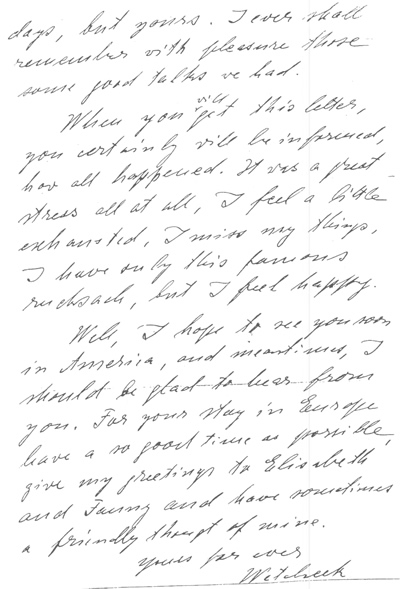 days, but yours. I ever shall
remember with pleasure those
some good talks we had.
When you will get this letter,
you certainly will be informed,
how all happened. It was a great
stress all at all, I feel a little
exhausted, I miss my things,
I have only this famous
rucksack, but I feel happy.
Well, I hope to see you soon
in America, and meantimes, I
should be glad to hear from
you. For your stay in Europe
have a so good time as possible,
give my greetings to Elisabeth
and and have sometimes
a friendly thougt of mine.
Yours for ever